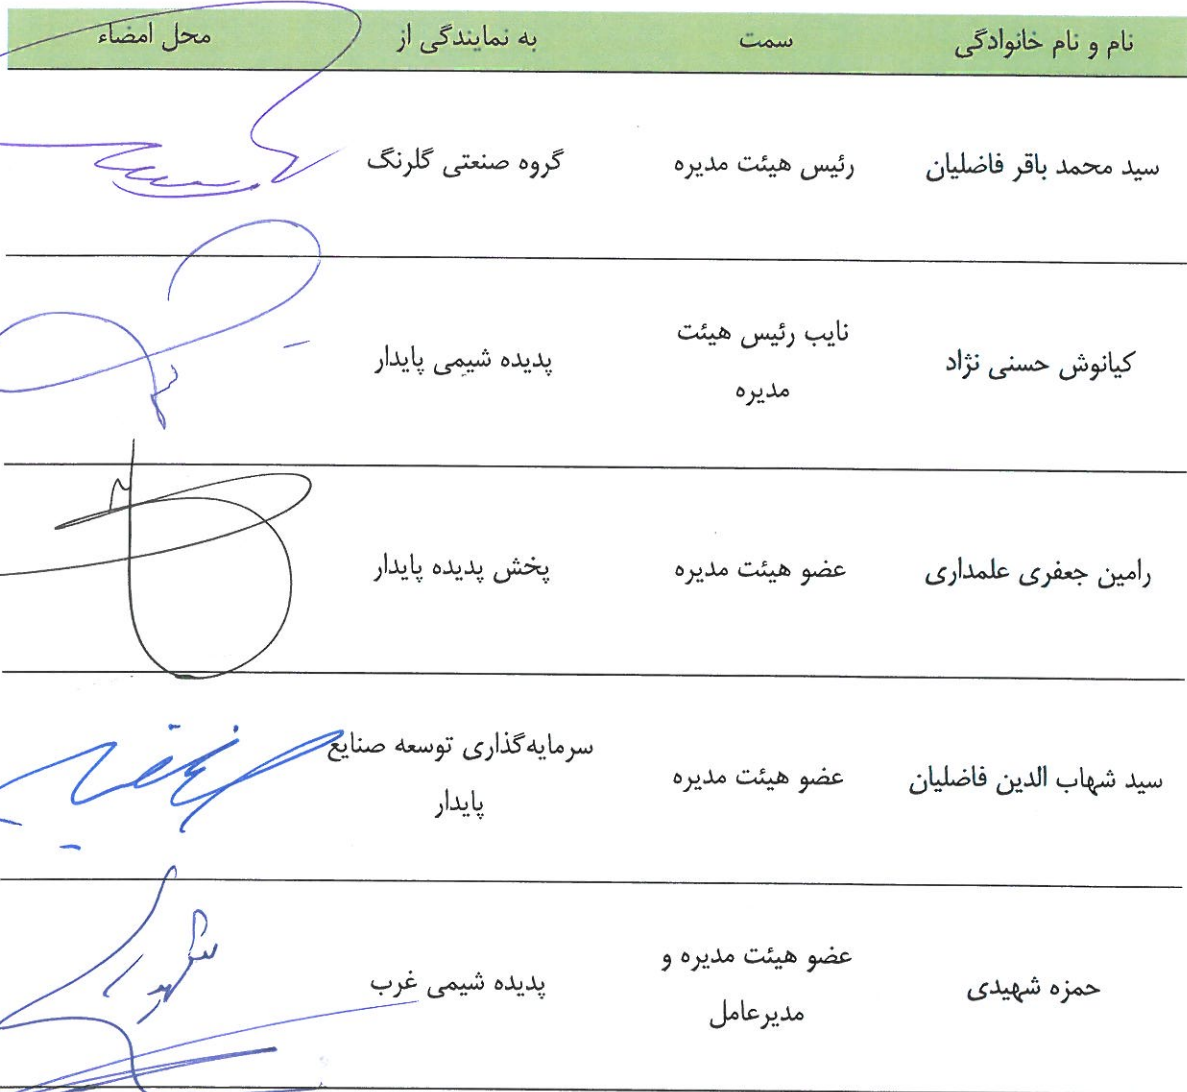 نام و نام خانوادگی سمت به نمایندگی از محل امضاء
سید محمد باقر فاضلیان رئیس هیئت مدیره گروه صنعتی گلرنگ
کیانوش حسنی نژاد نایب رئیس هیئت مدیره پدیده شیمی پایدار
رامین جعفری علمداری عضو هیئت مدیره پخش پدیده پایدار
سید شهاب الدین فاضلیان عضو هیئت مدیره سرمایه‌گذاری توسعه صنایع پایدار
حمزه شهیدی عضو هیئت مدیره و مدیرعامل پدیده شیمی غرب